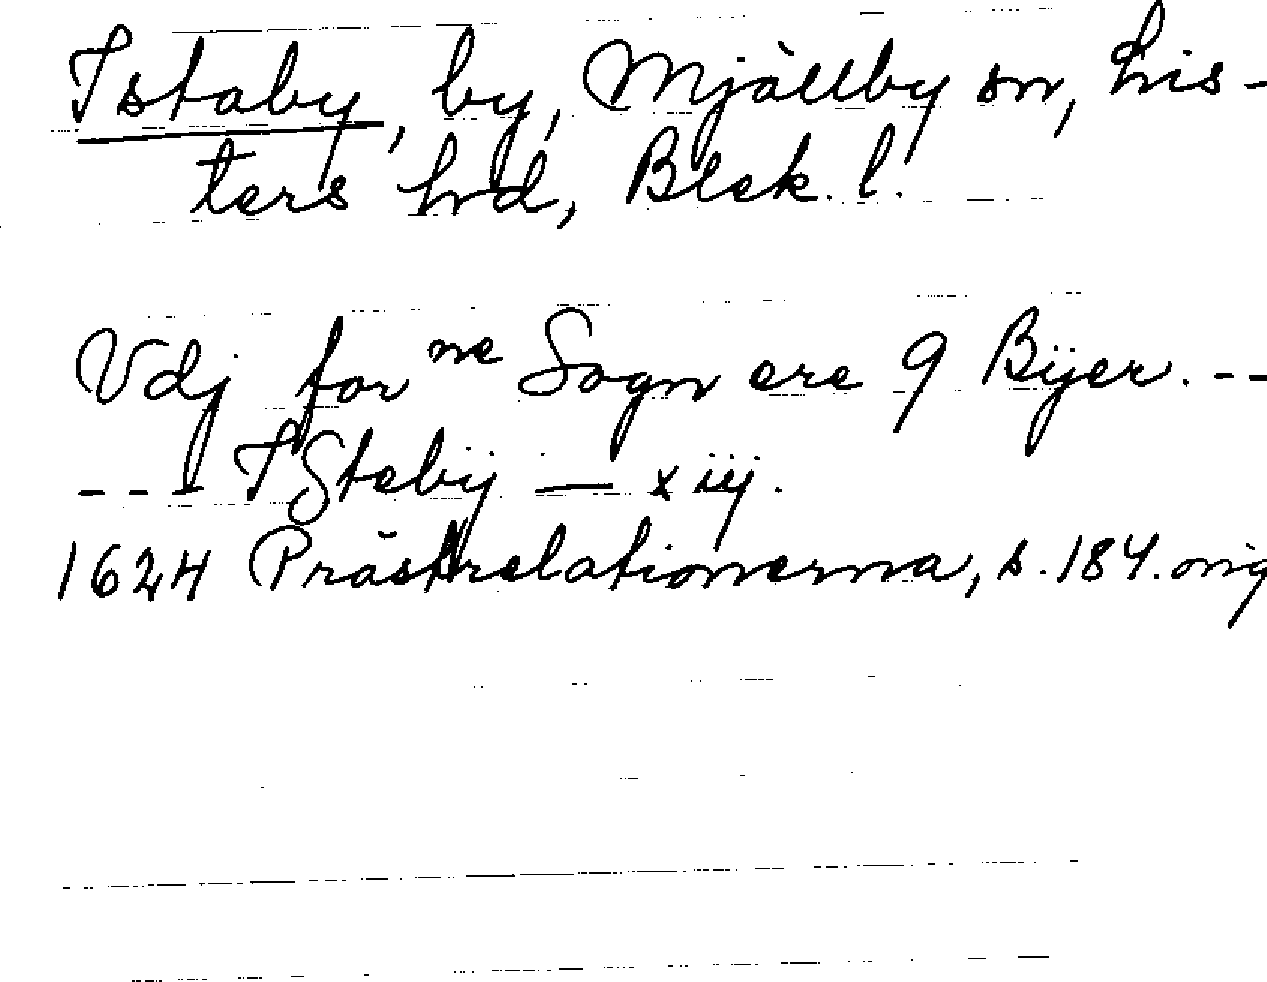 Istaby, by, Mjällby sn, Lis-
ters hrd, Blek. l.
Vdj for ne Sogn ere 9 Bÿer. --
--- IStebÿ — xiij.
1624 Prästrelationerna, s. 184. orig